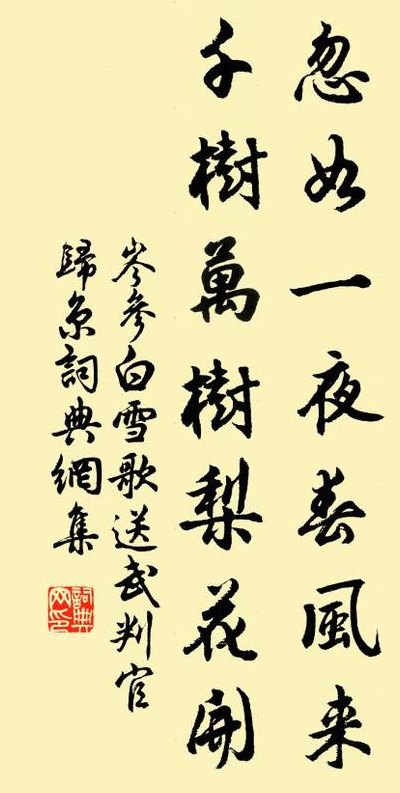 忽如一夜春風来
千樹萬樹梨花開
岑參白雪歌送武判官
歸京詞典網集
詞典网印